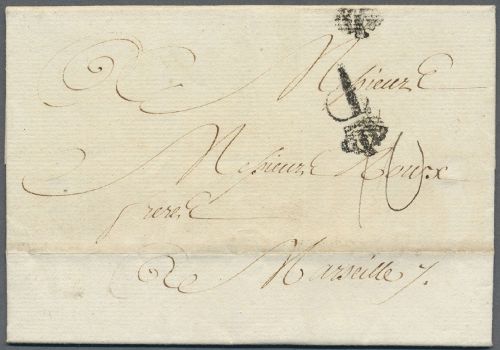 A Messieurs
Messieurs Roux
freres
A Marseille